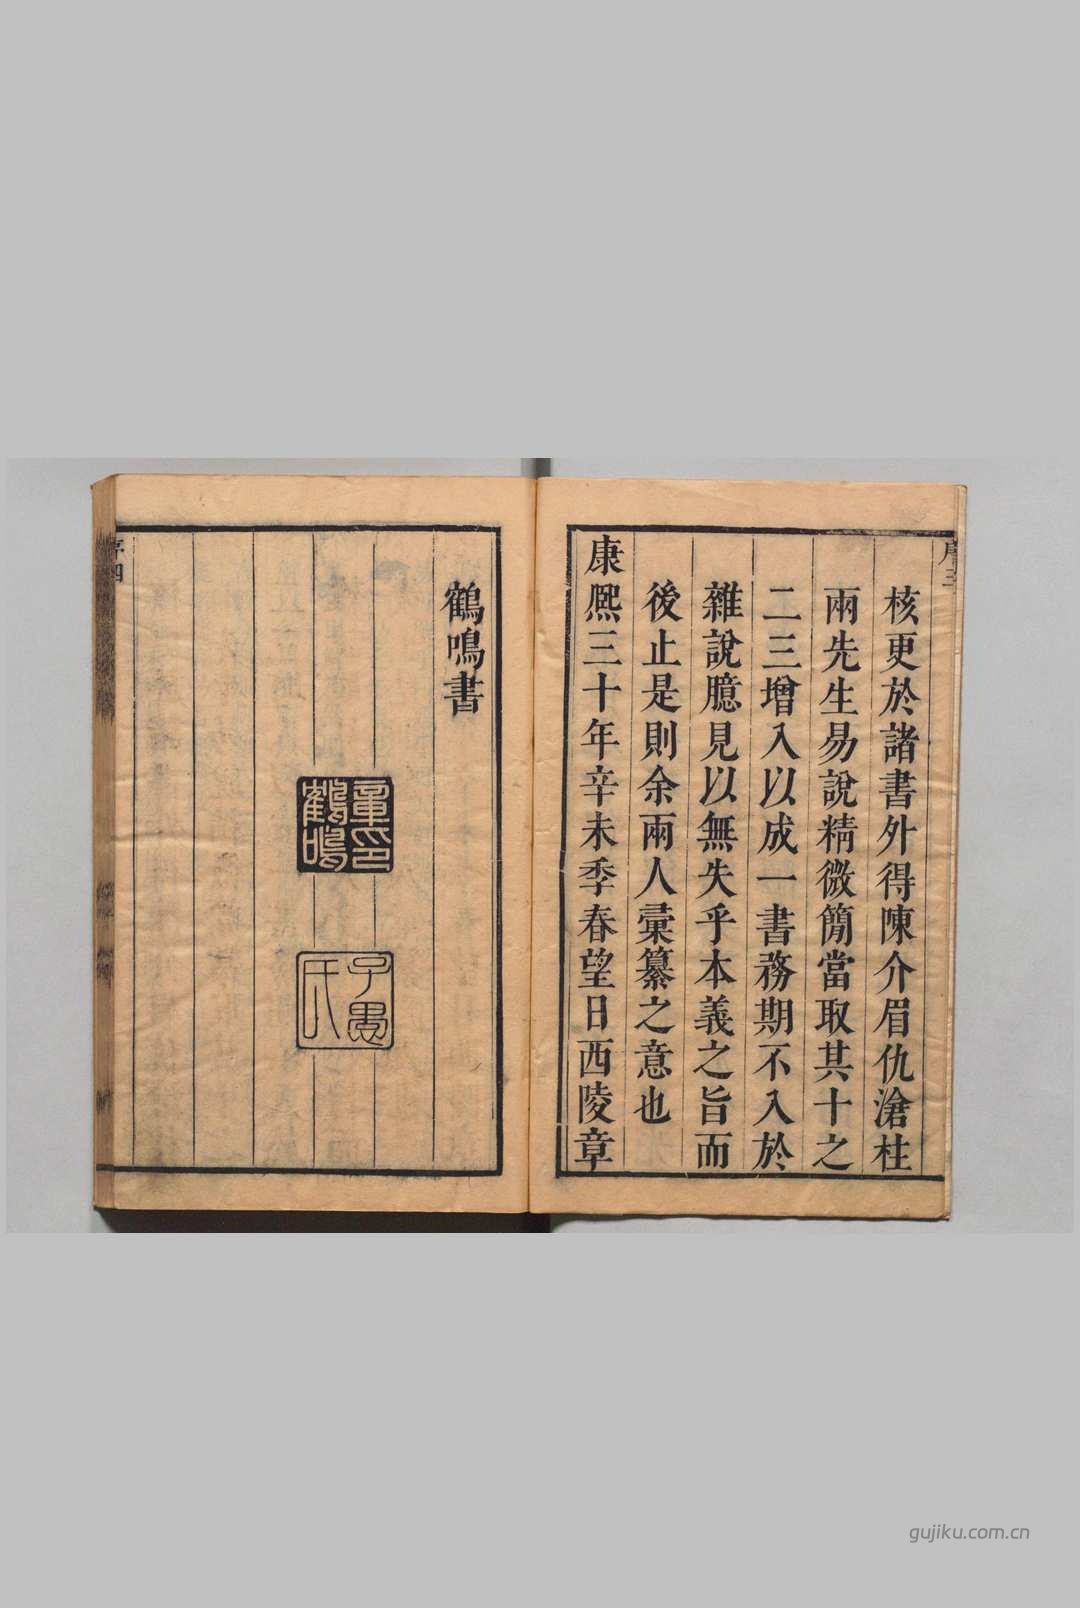 序三
核更於諸書外得陳介眉仇滄柱
兩先生易說精微簡當取其十之
二三增入以成一書務期不入於
雜說臆見以無失乎本義之旨而
後止是則余兩人彚纂之意也
康熙三十年辛未季春望日西陵章
鶴鳴書
章印
鶴鳴
子愚
氏
序四
gujiku.com.cn